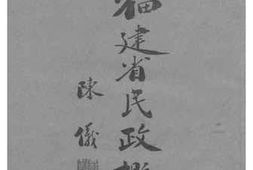 福建省民政概
陳儀